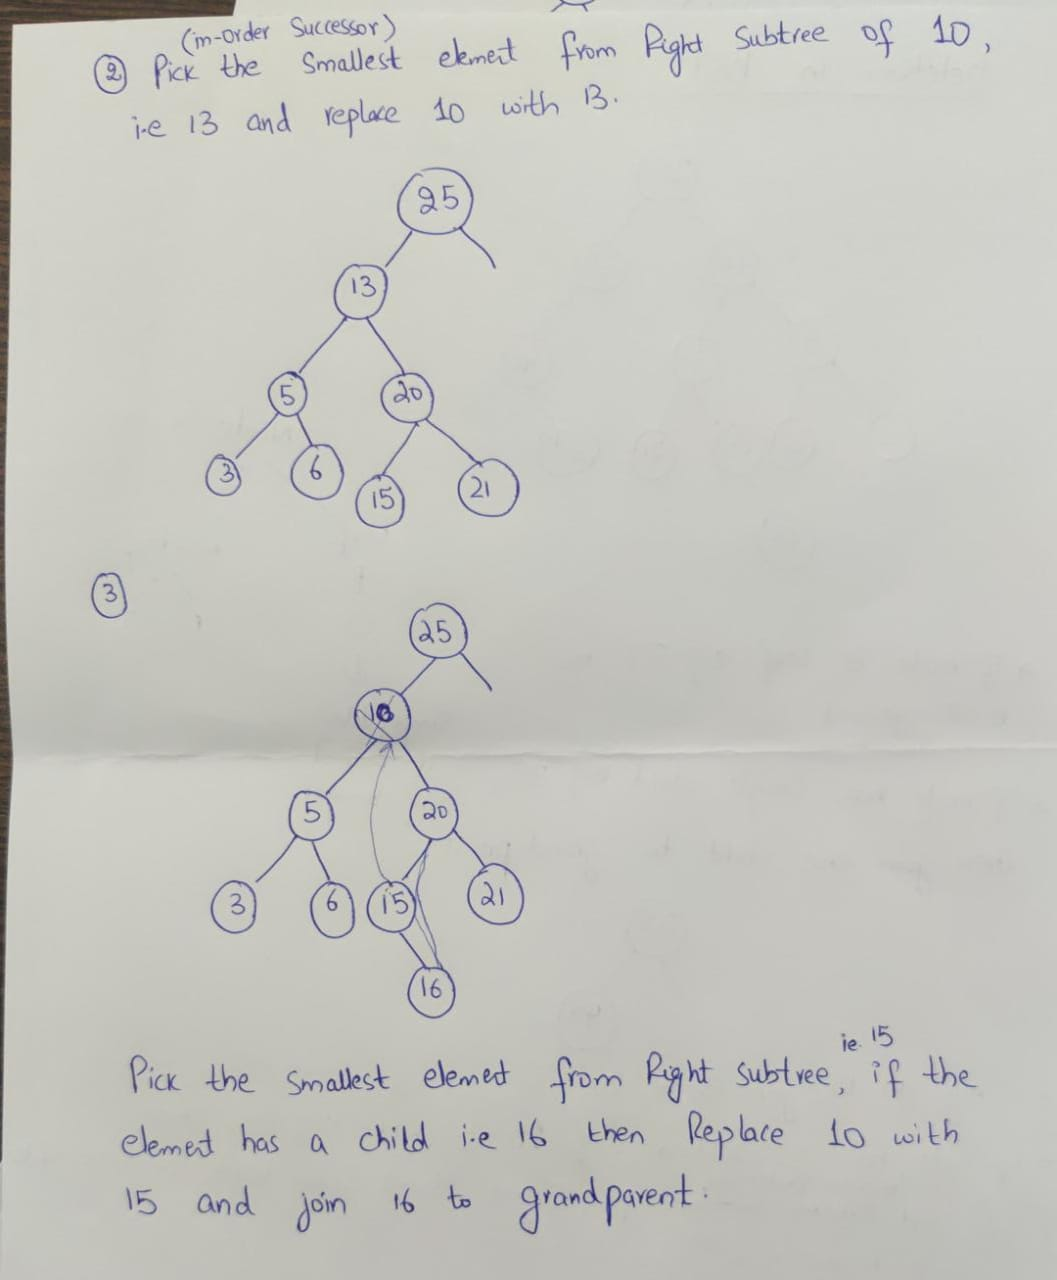 (in-order Successor)
② Pick the Smallest element from Right Subtree of 10,
i.e 13 and replace 10 with 13.
25
13
5 20
3 6 15 21
③
25
10
5 20
3 6 15 21
16
ie. 15
Pick the Smallest element from Right subtree, if the
element has a child i.e 16 then Replace 10 with
15 and join 16 to grandparent.